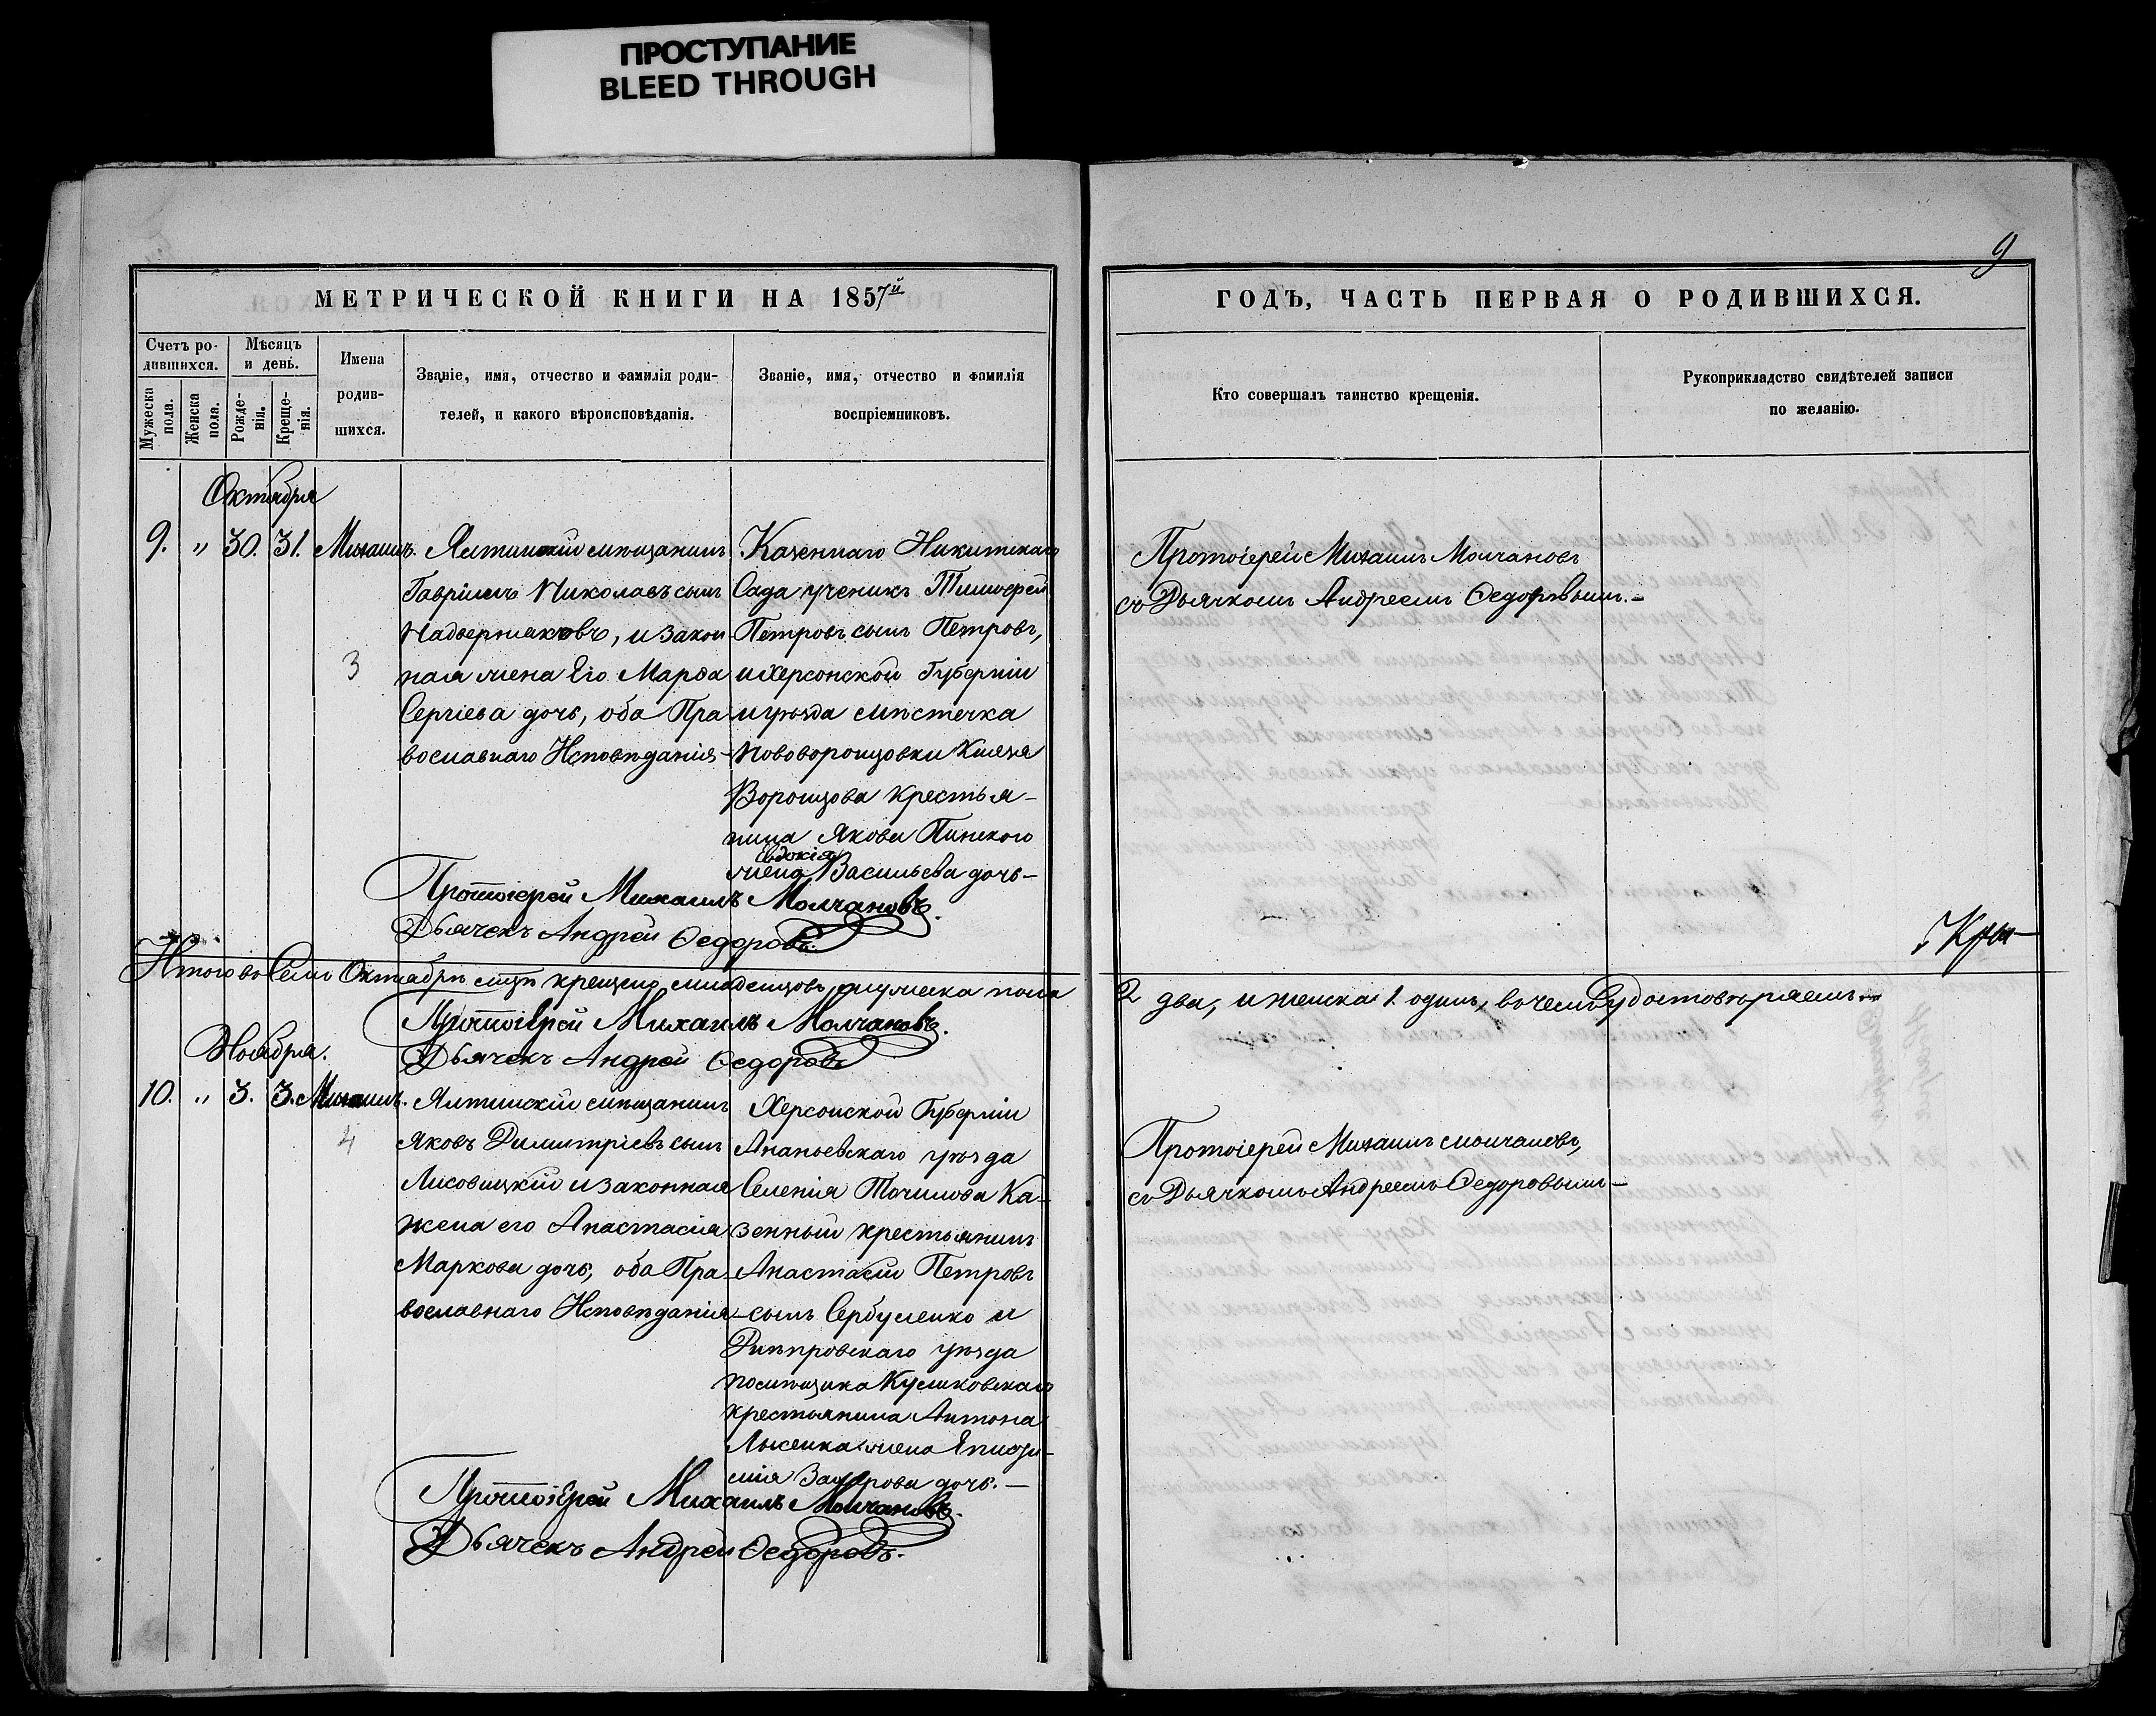 ПРОСТУПАНИЕ
BLEED THROUGH
9
МЕТРИЧЕСКОЙ КНИГИ НА 1857й
Счетъ ро-
дившихся.
Мѣсяцъ
и день.
Мужеска
пола.
Женска
пола.
Рожде-
нія.
Креще-
нія.
Имена
родив-
шихся.
Званіе, имя, отчество и фамилія роди-
телей, и какого вѣроисповѣданія.
Званіе, имя, отчество и фамилія
воспріемниковъ.
Октября
9. " 30. 31. Михаилъ.
3
Ялтинскій мѣщанинъ
Гавріилъ Николаевъ сынъ
Надверняковъ, и закон
ная жена Его Марѳа
Сергіева дочь, оба Пра
вославнаго Исповѣданія
Казеннаго Никитскаго
Сада ученикъ Тимоѳей
Петровъ сынъ Петровъ,
и Херсонской Губерніи
и уѣзда мѣстечка
Нововоронцовки Князя
Воронцова крестья-
нина Якова Пинского
Евдокія
жена Васильева дочь-
Протоіерей Михаилъ Молчановъ.
Дьячекъ Андрей Ѳедоровъ.
Итого въ Семъ Октябрѣ мцѣ крещено младенцовъ мужеска пола
Протоіерей Михаилъ Молчановъ.
Дьячекъ Андрей Ѳедоровъ
Ноября.
10. " 3. 3. Михаилъ.
4
Ялтинскій мѣщанинъ
Яковъ Димитріевъ сынъ
Лисовицкій и законная
жена его Анастасія
Маркова дочь, оба Пра
вославнаго Исповѣданія
Херсонской Губерніи
Ананьевскаго уѣзда
Селенія Точилова Ка-
зенный крестьянинъ
Анастасій Петровъ
сынъ Сербуленко и
Днѣпровскаго уѣзда
помѣщика Куликовскаго
крестьянина Антона
Лысенка жена
Захарова дочь.-
Протоіерей Михаилъ Молчановъ.
Дьячекъ Андрей Ѳедоровъ.
ГОДЪ, ЧАСТЬ ПЕРВАЯ О РОДИВШИХСЯ.
Кто совершалъ таинство крещенія.
Рукоприкладство свидѣтелей записи
по желанію.
Протоіерей Михаилъ Молчановъ
съ Дьячкомъ Андреемъ Ѳедоровымъ.-
2 два, и женска 1. одинъ, въ чемъ удостовѣряемъ
Протоіерей Михаилъ Молчановъ,
съ Дьячкомъ Андреемъ Ѳедоровымъ-